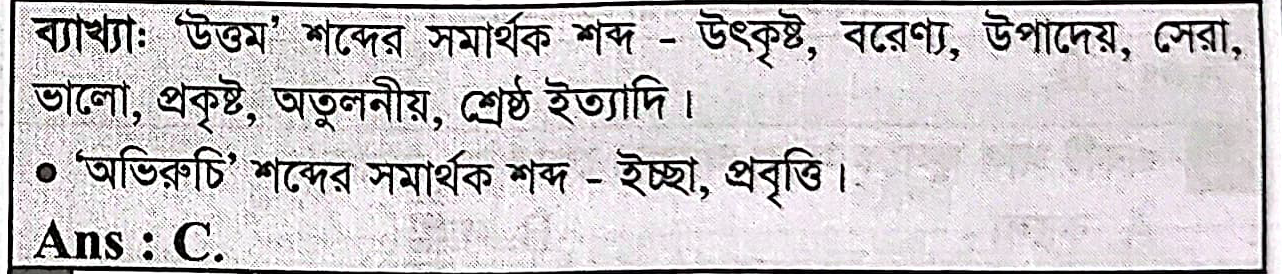 ব্যাখ্যাঃ 'উত্তম' শব্দের সমার্থক শব্দ - উৎকৃষ্ট, বরেণ্য, উপাদেয়, সেরা,
ভালো, প্রকৃষ্ট, অতুলনীয়, শ্রেষ্ঠ ইত্যাদি।
● 'অভিরুচি' শব্দের সমার্থক শব্দ - ইচ্ছা, প্রবৃত্তি।
Ans : C.